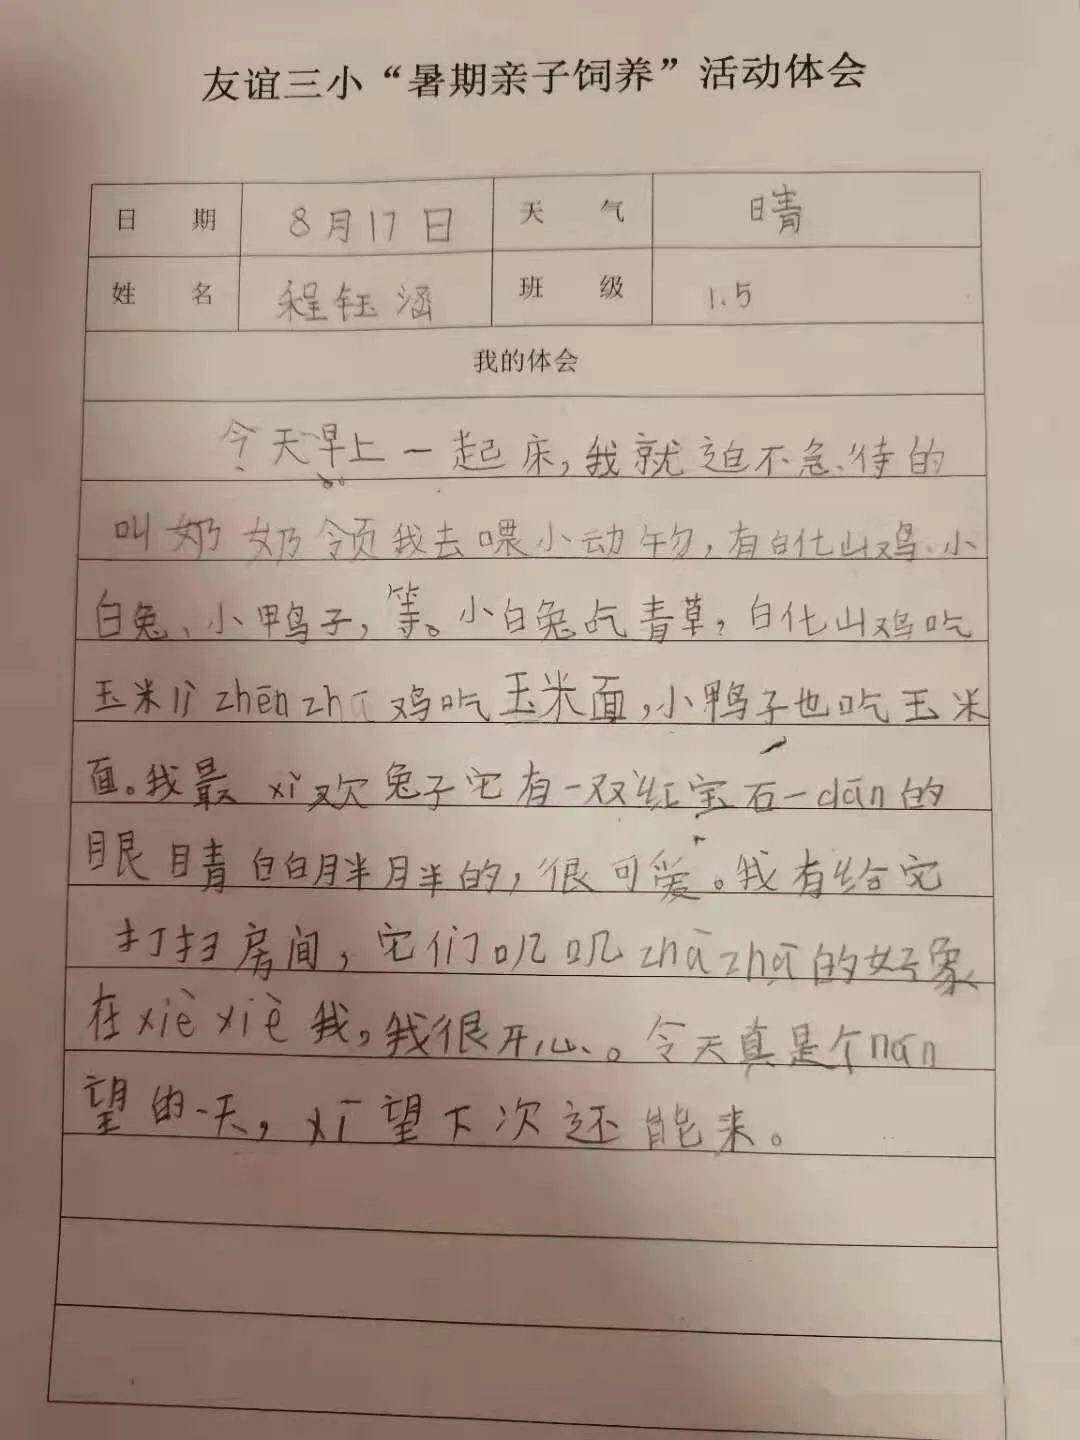 友谊三小“暑期亲子饲养”活动体会
日 期 8月17日 天 气 晴
姓 名 程钰涵 班 级 1.5
我的体会
今天早上一起床,我就迫不急待的
叫奶奶领我去喂小动物,有白化山鸡、小
白兔、小甲鸭子,等。小白兔吃青草,白化山鸡吃
玉米lì zhēn zhū 鸡吃玉米面,小鸭子也吃玉米
面。我最xǐ欢兔子它有一双红宝石一dān的
眼睛白白胖胖的,很可爱。我有给它
打扫房间,它们叽叽zhā zhā的好象
在xiè xiè我,我很开心、。今天真是个nán
望的一天,xī望下次还能来。